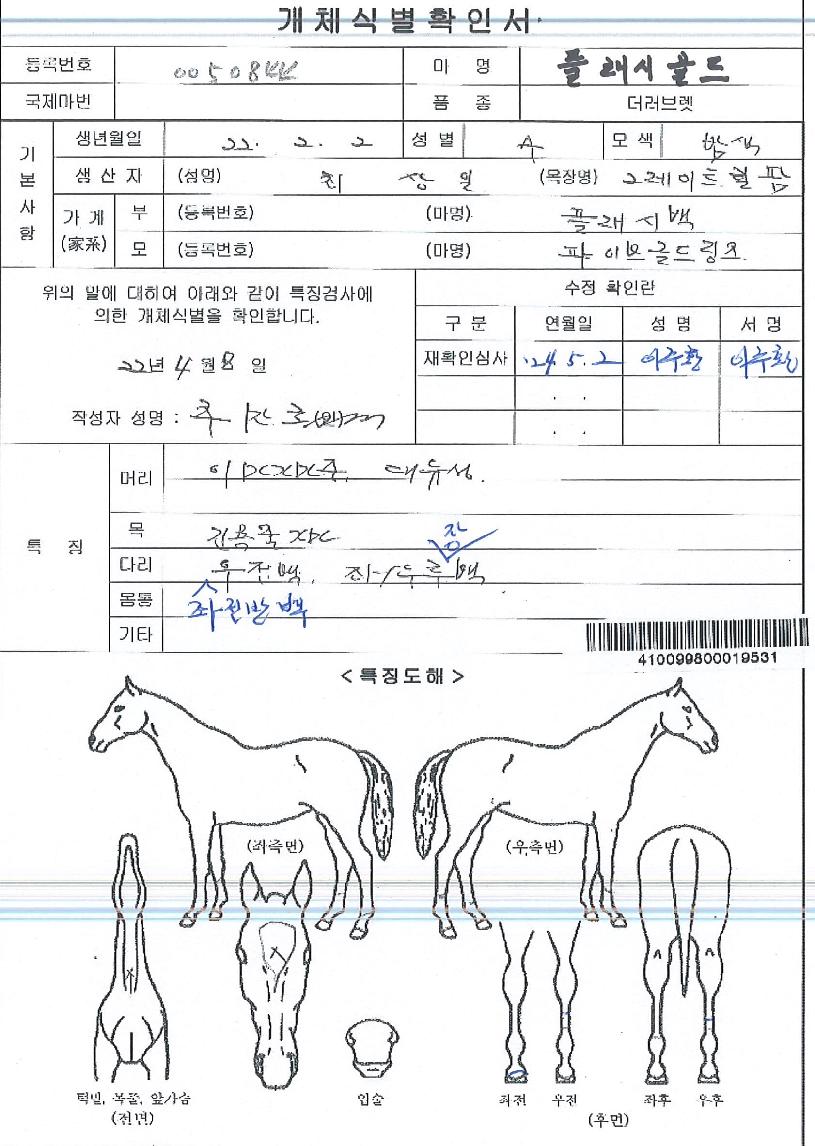 개체식별확인서
등록번호 005084 마 명 플래시골드
국제마번 품 종 더러브렛
기본사항
생년월일 22. 2. 2 성 별 모 색 밤색
생 산 자 (성명) 최 상 일 (목장명) 그레이트힐팜
가 계 (家系) 부 (등록번호) (마명) 플래시백
모 (등록번호) (마명) 파이브골드링즈
위의 말에 대하여 아래와 같이 특징검사에
의한 개체식별을 확인합니다.
22년 4월 8일
작성자 성명 :
수정 확인란
구 분 연월일 성 명 서 명
재확인심사 '24. 5. 2 이주환 이주환
. .
. .
특 징
머리 대유성.
목
다리 우전백, 좌/우후백
장
몸통 좌전반백
기타
410099800019531
< 특징도해 >
(좌측면) (우측면)
턱밑, 목줄, 앞가슴
(전면)
입술
좌전 우전 좌후 우후
(후면)